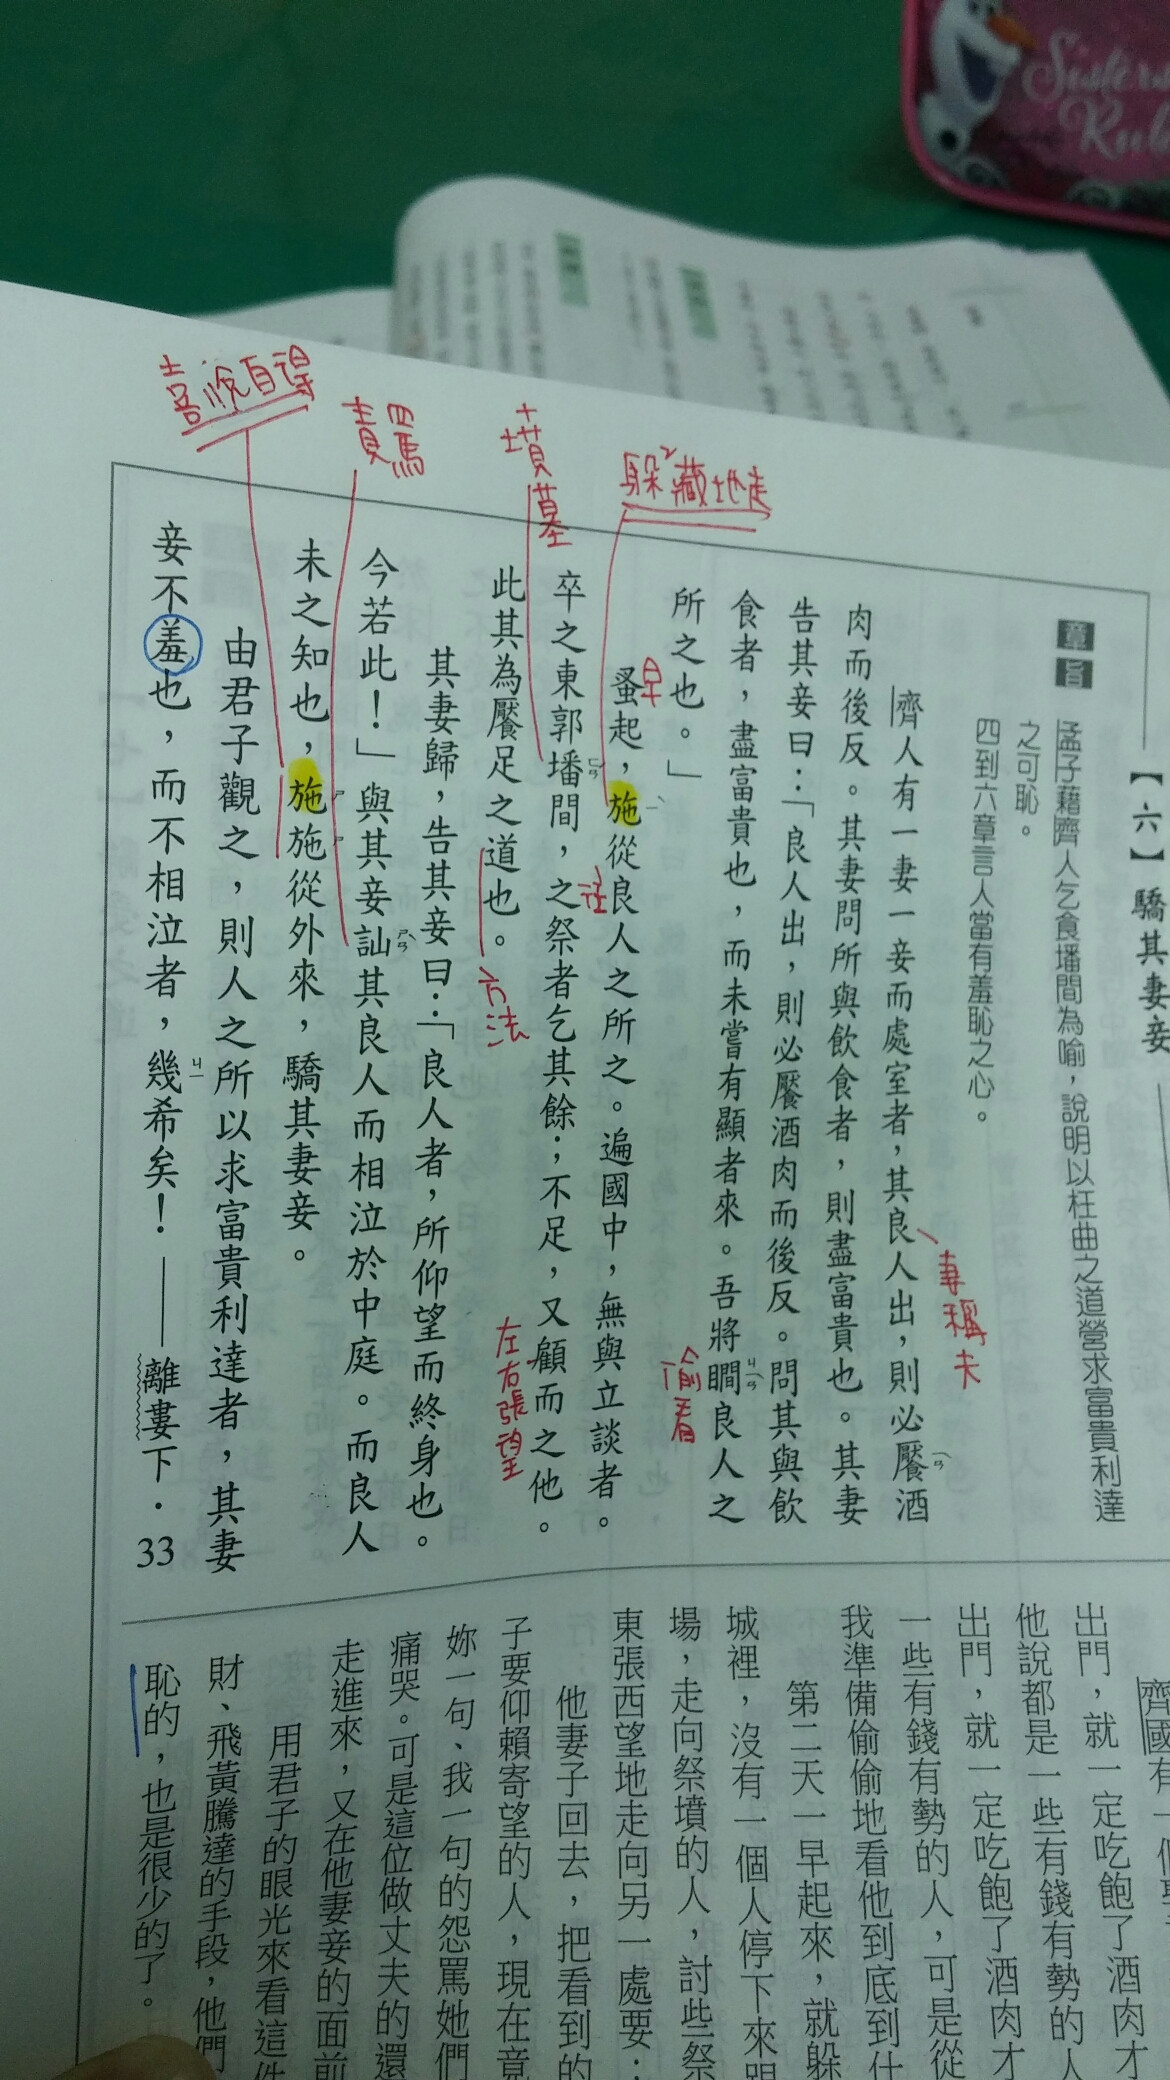 【六】驕其妻妾
章旨
孟子藉齊人乞食墦間為喻，說明以枉曲之道營求富貴利達
之可恥。
四到六章言人當有羞恥之心。
齊人有一妻一妾而處室者，其良人出，則必饜酒
肉而後反。其妻問所與飲食者，則盡富貴也。其妻
告其妾曰：「良人出，則必饜酒肉而後反。問其與飲
食者，盡富貴也，而未嘗有顯者來。吾將瞷良人之
所之也。」
蚤起，施從良人之所之。遍國中，無與立談者。
卒之東郭墦間，之祭者乞其餘；不足，又顧而之他。
此其為饜足之道也。
其妻歸，告其妾曰：「良人者，所仰望而終身也。
今若此！」與其妾訕其良人而相泣於中庭。而良人
未之知也，施施從外來，驕其妻妾。
由君子觀之，則人之所以求富貴利達者，其妻
妾不羞也，而不相泣者，幾希矣！——離婁下．33
妻稱夫
ㄧㄢ
偷看
ㄐㄧㄢ
早
ㄧ
躲藏地走
往
墳墓
ㄈㄢ
左右張望
方法
責罵
ㄕㄢ
喜悅自得
ㄐㄧ
齊國有一個
出門，就一定吃飽了酒肉才
他說都是一些有錢有勢的人
出門，就一定吃飽了酒肉才
一些有錢有勢的人，可是從
我準備偷偷地看他到底到什
第二天一早起來，就躲
城裡，沒有一個人停下來跟
場，走向祭墳的人，討些祭
東張西望地走向另一處要：
他妻子回去，把看到的
子要仰賴寄望的人，現在竟
妳一句、我一句的怨罵她們
痛哭。可是這位做丈夫的還
走進來，又在他妻妾的面前
用君子的眼光來看這件
財、飛黃騰達的手段，他們
恥的，也是很少的了。
Sisters
Rule